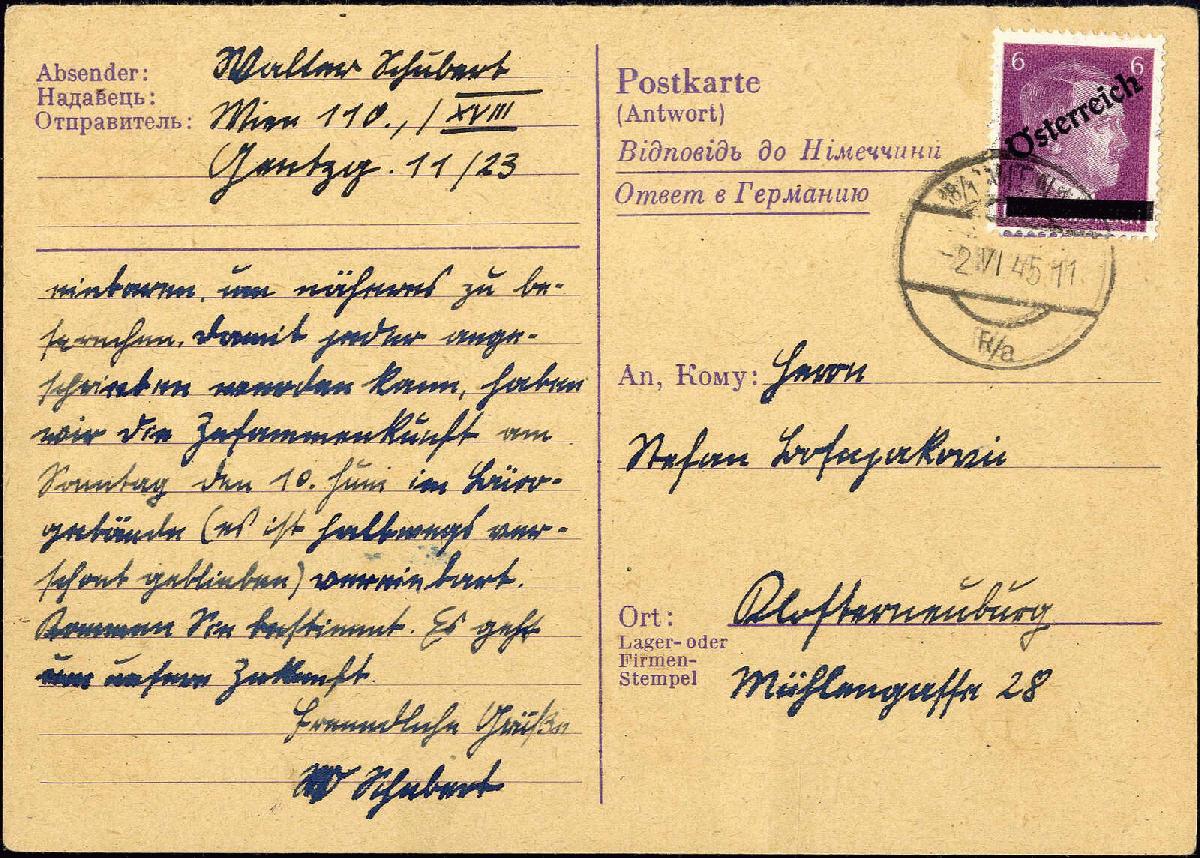 Absender:
Надавець:
Отправитель:
Walter Schubert
Wien 110., / XVIII
Gentzg. 11/23
einbaren, um näheres zu be-
sprechen. Damit jeder ange-
schrieben werden kann, haben
wir die Zusammenkunft am
Sonntag den 10. Juni im Büro-
gebäude (es ist halbwegs ver-
schont geblieben) vereinbart.
Kommen Sie bestimmt. Es geht
um unsere Zukunft.
Freundliche Grüße
W Schubert
Postkarte
(Antwort)
Відповідь до Німеччини
Ответ в Германию
6 6
Österreich
-2.VI 45.11.
R/a
An, Кому: Herrn
Stefan
Ort: Klosterneuburg
Lager- oder
Firmen-
Stempel
Mühlengasse 28